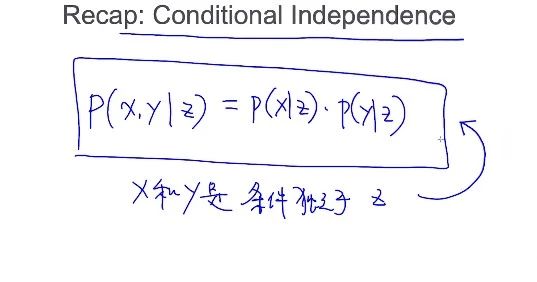 Recap: Conditional Independence
P(x,y|z) = p(x|z)·p(y|z)
x和y是条件独立于 z